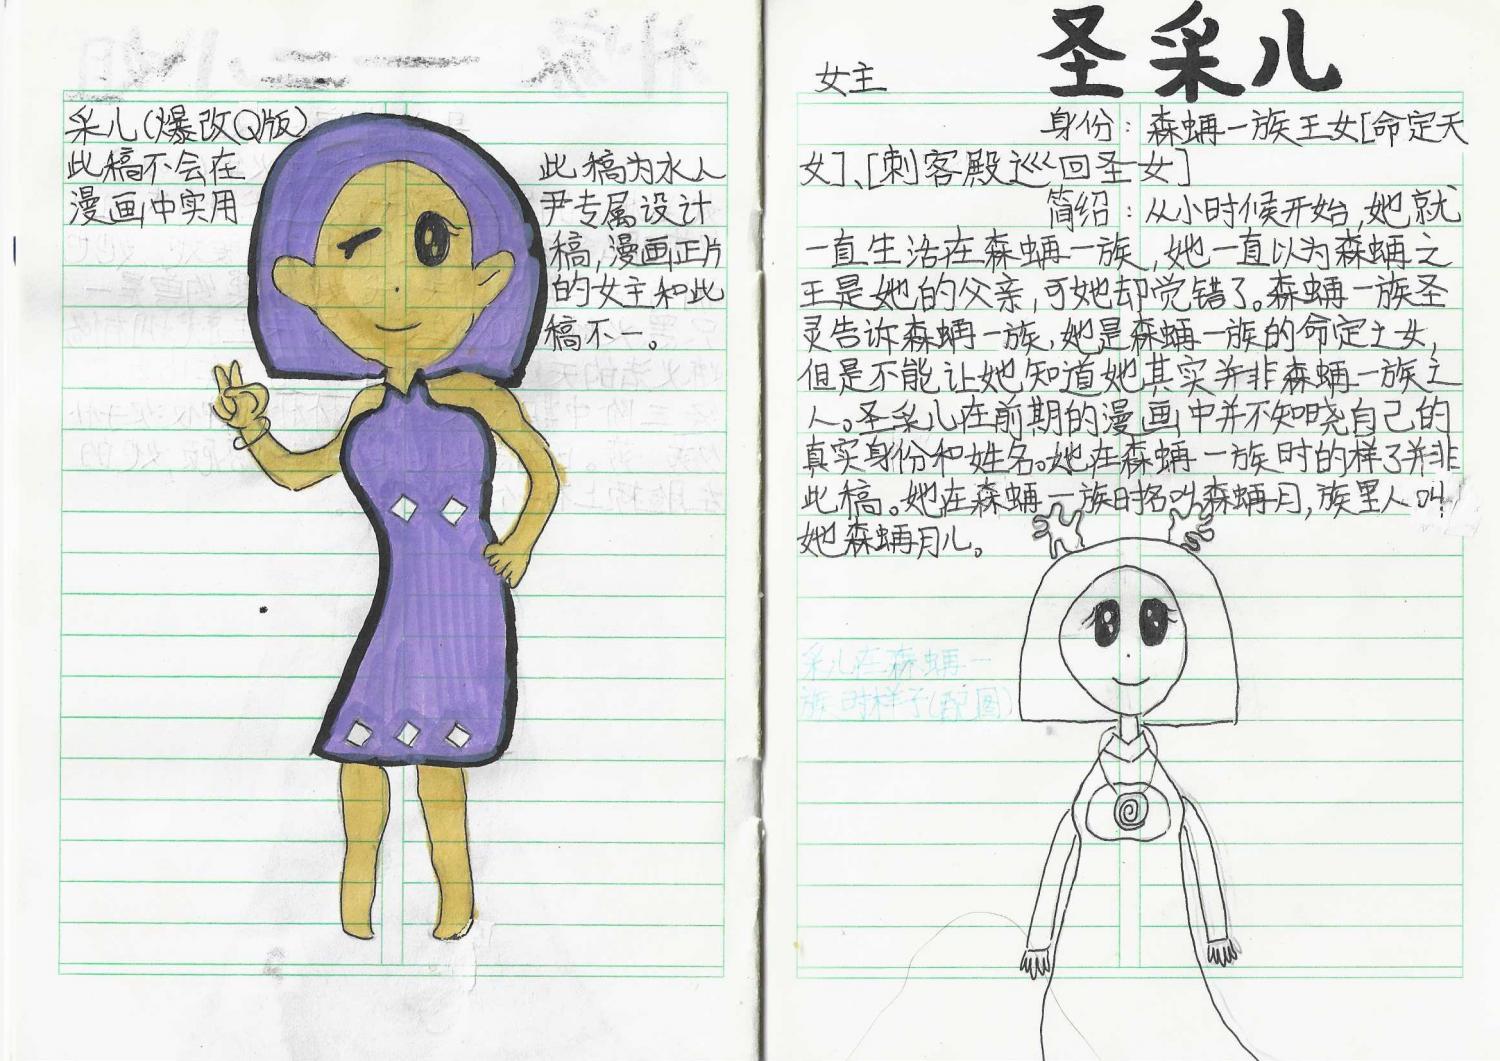 采儿(爆改Q版)
此稿不会在
漫画中实用
此稿为水人
尹专属设计
稿,漫画正片
的女主和此
稿不一。
圣采儿
女主
身份:森蝻一族王女[命定天
女]、[刺客殿巡回圣女]
简绍:从小时候开始,她就
一直生活在森蝻一族,她一直以为森蝻之
王是她的父亲,可她却觉错了。森蝻一族圣
灵告诉森蝻一族,她是森蝻一族的命定土女,
但是不能让她知道她其实并非森蝻一族之
人。圣采儿在前期的漫画中并不知晓自己的
真实身份和姓名。她在森蝻一族时的样了并非
此稿。她在森蝻一族时名叫森蝻月,族里人叫
她森蝻月儿。
采儿在森蝻一
族时样子(配图)